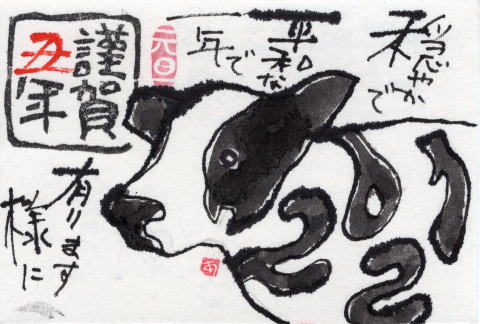 穏やかで
平和な
一年で
元旦
謹賀
丑年
有ります
様に
2021